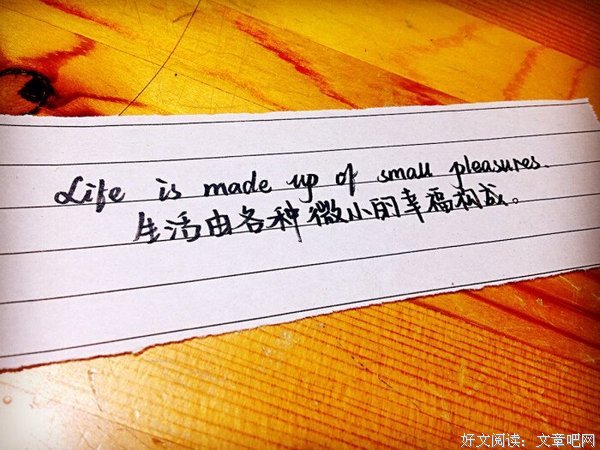 Life is made up of small pleasures.
生活由各种微小的幸福构成。
好文阅读：文章吧网